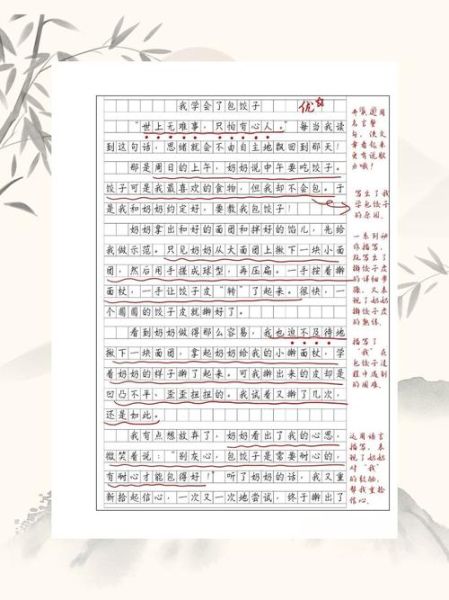 我学会了包饺子
优
“世上无难事，只怕有心人。”每当我读
到这句话，思绪就会不由自主地飘回到那天！
那是周日的上午，奶奶说中午要吃饺子。
饺子可是我最喜欢的食物，但我却不会包。于
是我和奶奶约定好，要教我包饺子！
奶奶拿出和好的面团和拌好的馅儿，先给
我做示范。只见奶奶从大面团上揪下一块小面
团，然后用手揉成球型，再压扁。一手按着擀
面杖，一手让饺子皮“转”了起来。很快，一
个圆圆的饺子皮就擀好了。
看到奶奶做得那么容易，我也迫不及待地
揪下一块面团，拿起奶奶给我的小擀面杖，学
着奶奶的样子擀了起来。可我擀出来的皮却是
凹凸不平，歪歪扭扭的。我试着又擀了几次，
还是如此。
我有点想放弃了，奶奶看出了我的心思，
微笑着说：“别灰心，包饺子是需要耐心的，
有耐心才能包得好！”听了奶奶的话，我又重
新拾起信心，一次又一次地尝试，终于擀出了
开篇运用
名言警
句，使文
章看起来
更有说服
力哦！
写出了我
学包饺子
的原因。
一系列动
作描写，
既写出了
擀饺子皮
的详细步
骤，又表
现了奶奶
擀饺子皮
的熟练。
描写了
“我”在
包饺子过
程中遇到
的困难。
运用语言
描写，表
现了奶奶
对“我”
的鼓励，
帮我重拾
信心。